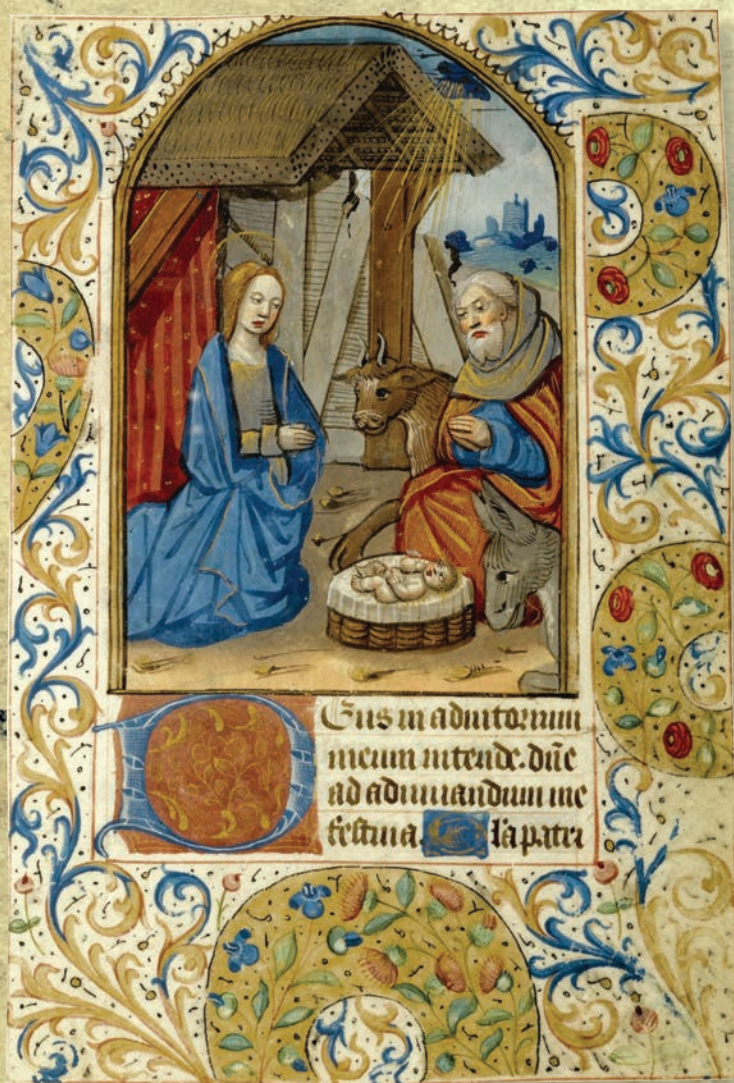 Deus in adiutorium
meum intende. dn̄e
ad adiuuandum me
festina. Gl̄a patri